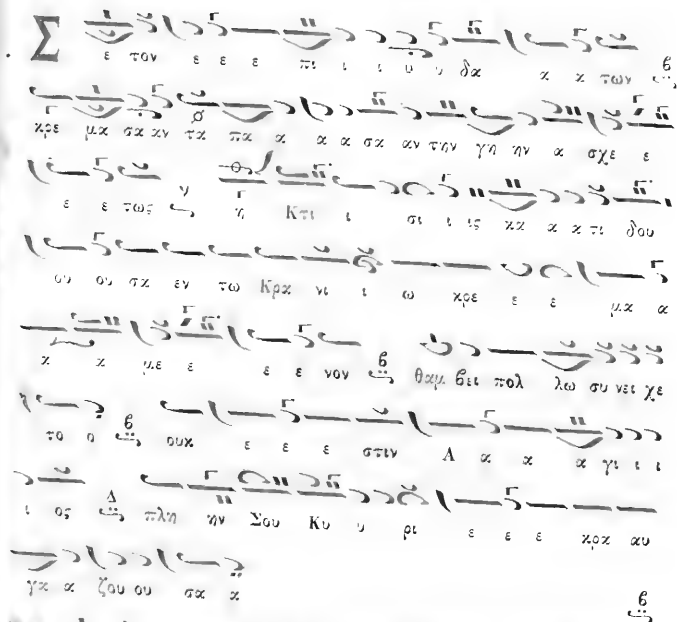 Σ ε τον ε ε ε πι ι ι υ υ δα α α των β
κρε μα σα αν τα πα α α α σα αν την γη ην α σχε ε
ε ε τως γ η Κτι ι σι ι ις κα α α τι δου
ου ου σα εν τω Κρα νι ι ω κρε ε ε μα α
α α με ε ε ε νον β θαμ βει πολ λω συ νει χε
το ο β ουκ ε ε ε στιν Α α α α γι ι ι
ι ος Δ πλη ην Σου Κυ υ ρι ε ε ε κρα αυ
γα α ζου ου σα α β